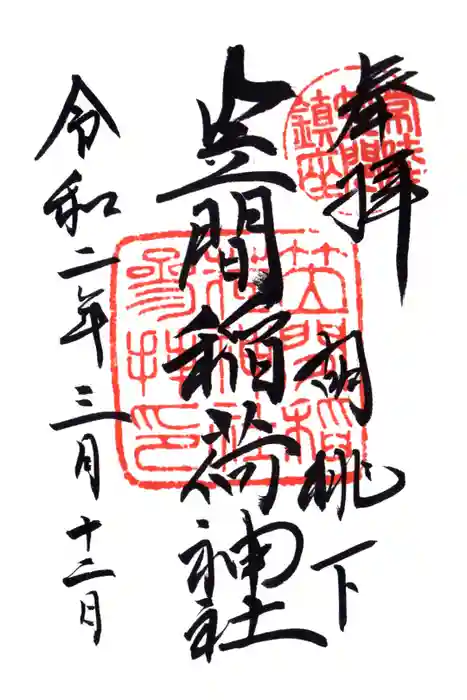 奉拝
胡桃下
笠間稲荷神社
令和二年三月十二日
常陸
笠間
鎮座
笠間稲
荷神社
参拝印